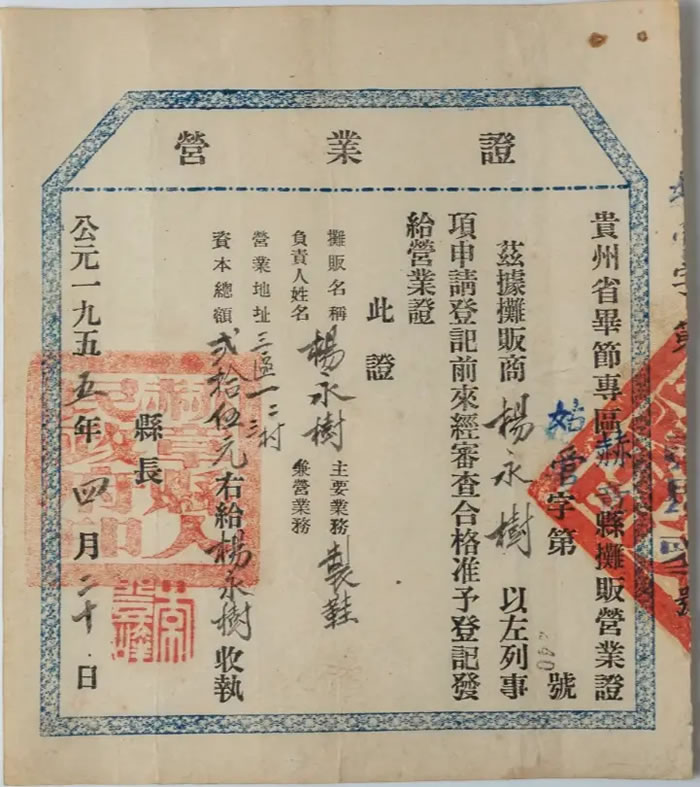 營業證
貴州省畢節專區赫章縣攤販營業證
營字第240號
茲據攤販商楊永樹以左列事
項申請登記前來經審查合格准予登記發
給營業證
此證
攤販名稱
負責人姓名 楊永樹
主要業務 製鞋
兼營業務
營業地址 三區一二村
資本總額 弍拾伍元
右給楊永樹收執
縣長
公元一九五五年四月二十日